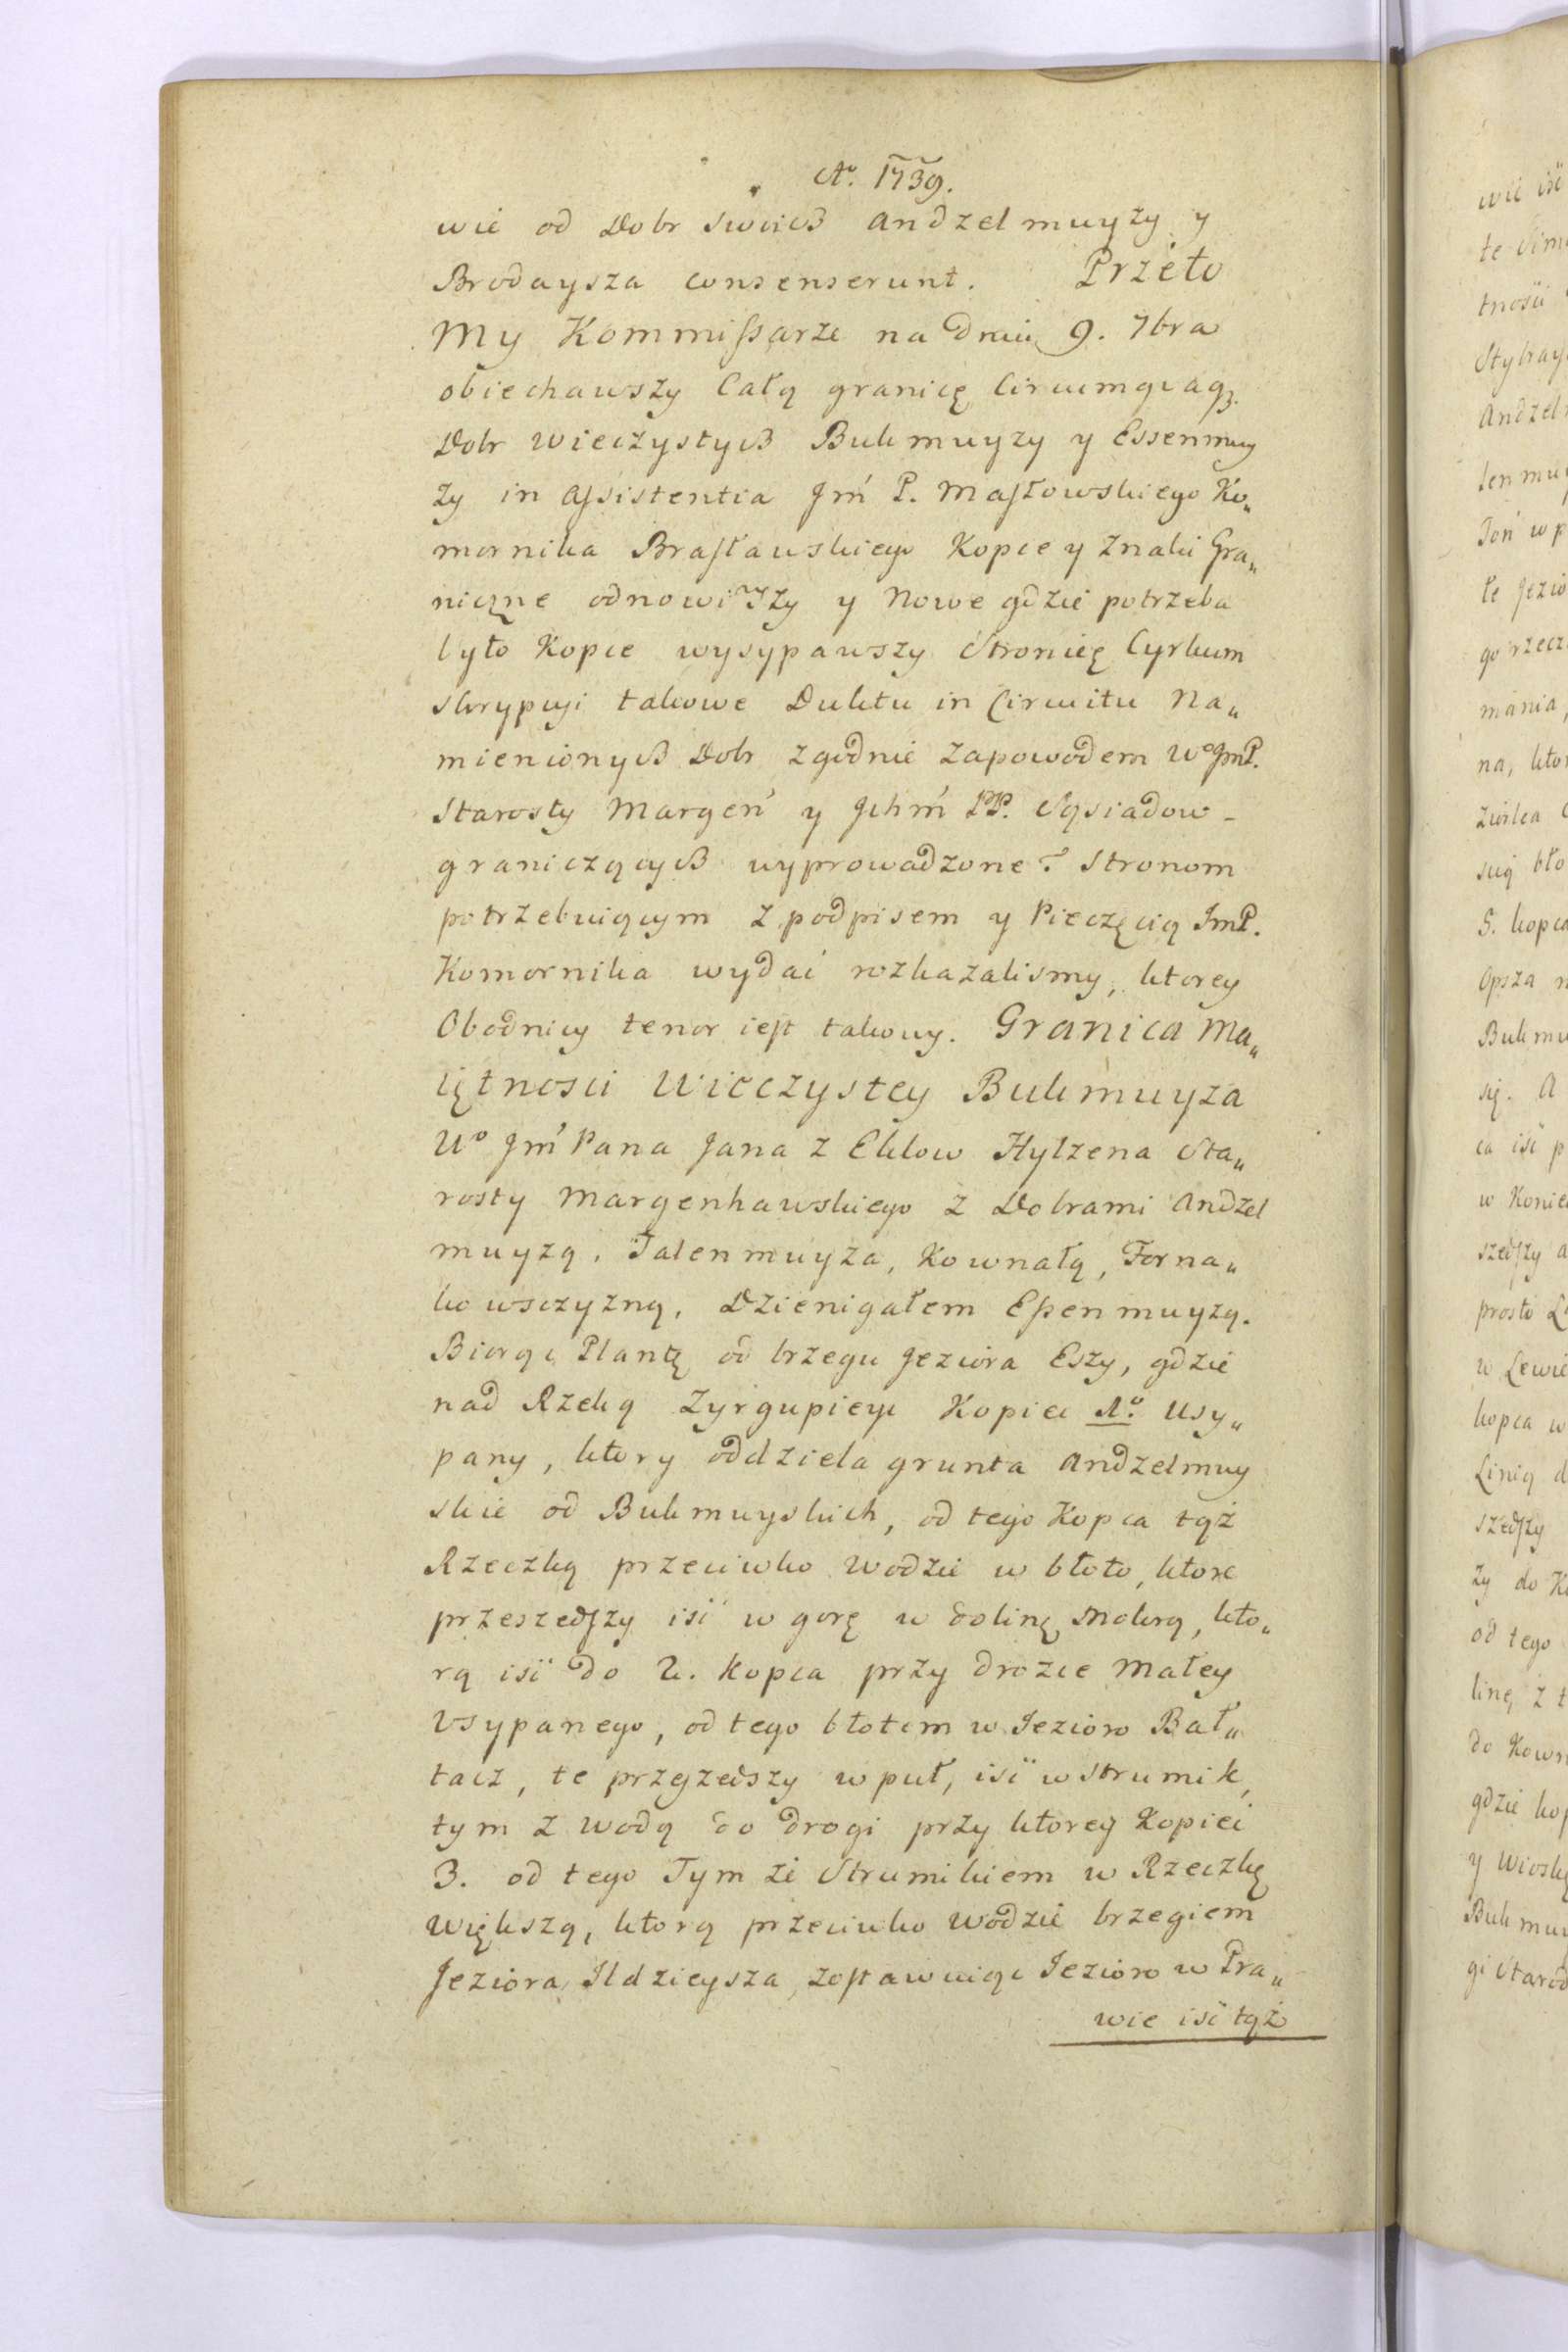 Aº. 1739.
wie od Dobr swoich Andzelmuyży y
Brodaysza consenserunt. Przeto
My Kommissarze na dniu 9. 7bra
obiechawszy Całą granicę Circumquaq3.
Dobr wieczystych Bukmuyzy y Essenmuy
ży in assistentia Jm P. Masłowskiego Ko„
mornika Brasławskiego Kopce y Znaki Gra„
niczne odnowiwszy y Nowe gdzie potrzeba
było Kopce wysypawszy Stronicę Cyrkum
skrypcyi takowe Duktu in Circuitu Na„
mienionych Dobr zgodnie zapowodem Wº JmP.
Starosty Margen y Jchm PP. Sąsiadow
graniczących wyprowadzone? Stronom
potrzebuiącym z podpisem y Pieczęcią JmP.
Komornika wydać rozkazalismy, ktorey
Obodnicy tenor iest takowy. Granica Ma„
iętnosci Wieczystey Bukmuyza
Wº Jm Pana Jana z Eklow Hylzena Sta„
rosty Margenhawskiego z Dobrami Andzel
muyzą, Talenmuyza, Kownatą, Forna„
kowsczyzną, Dzienigałem Essenmuyzą.
Biorąc Plantę od brzegu Jeziora Eszy, gdzie
nad Rzeką Zyrgupicyi Kopiec 1º. Usy„
pany, ktory oddziela grunta Andzelmuy
skie od Bukmuyskich, od tego Kopca tąż
Rzeczką przeciwko Wodzie w błoto, ktore
przeszedszy iść w gorę w dolinę Mokrą, kto„
rą iść do 2. Kopca przy drozce Małey
Vsypanego, od tego błotem w Jezioro Bał„
tacz, te przeszedszy wpuł, iść w Strumik,
tym z Wodą do drogi przy ktorey Kopiec
3. od tego Tym że Strumikiem w Rzeczkę
Większą, ktorą przeciwko Wodzie brzegiem
Jeziora Ildzieysza, zostawuiąc Jezioro w Pra„
wie iść tąż